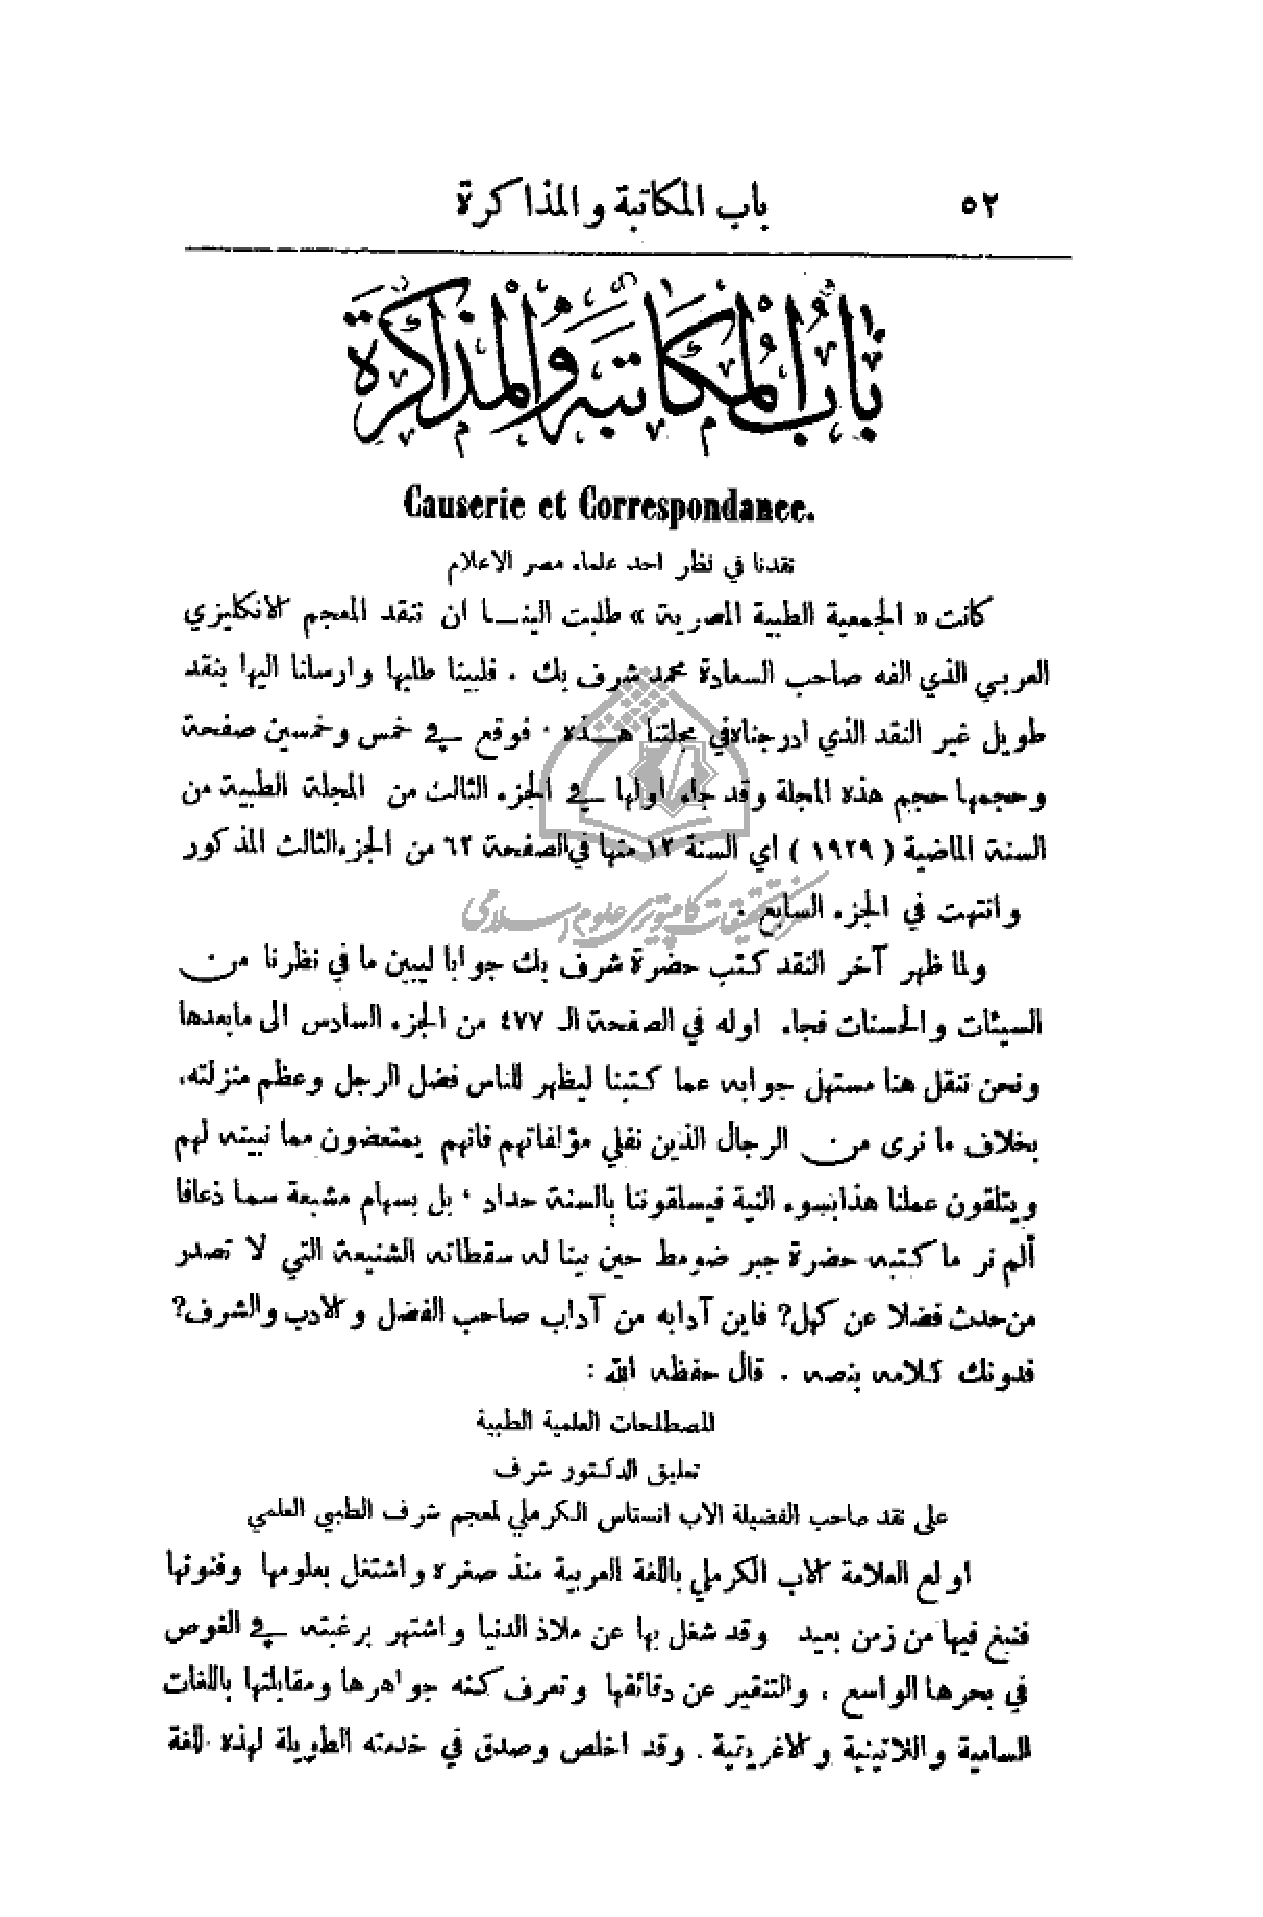 ٥٢ باب المكاتبة والمذاكرة
بَابُ الْمُكَاتَبَةِ وَالْمُذَاكَرَةِ
Causerie et Correspondance.
نقدنا في نظر احد علماء مصر الاعلام
كانت « الجمعية الطبية المصرية » طلبت الينا ان ننقد المعجم الانكليزي
العربي الذي الفه صاحب السعادة محمد شرف بك . فلبينا طلبها وارسلنا اليها بنقد
طويل غير النقد الذي ادرجناه في مجلتنا هذه . فوقع في خمس وخمسين صفحة
وحجمها حجم هذه المجلة وقد جاء اولها في الجزء الثالث من المجلة الطبية من
السنة الماضية ( ١٩٢٩ ) اي السنة ١٢ منها في الصفحة ٦٣ من الجزء الثالث المذكور
وانتهت في الجزء السابع .
مركز تحقيقات كامپيوتري علوم اسلامي
ولما ظهر آخر النقد كتب حضرة شرف بك جوابا ليبين ما في نظرنا من
السيئات والحسنات فجاء اوله في الصفحة الـ ٤٧٧ من الجزء السادس الى ما بعدها
ونحن ننقل هنا مستهل جوابه عما كتبنا ليظهر للناس فضل الرجل وعظم منزلته،
بخلاف ما نرى من الرجال الذين نفلي مؤلفاتهم فانهم يمتعضون مما نبيته لهم
ويتلقون عملنا هذا بسوء النية فيسلقوننا بالسنة حداد ، بل بسهام مشبعة سما ذعافا
ألم تر ما كتبه حضرة جبر ضومط حين بينا له سقطاته الشنيعة التي لا تصدر
من حدث فضلا عن كهل? فاين آدابه من آداب صاحب الفضل والادب والشرف?
فدونك كلامه بنصه . قال حفظه الله :
المصطلحات العلمية الطبية
تعليق الدكتور شرف
على نقد صاحب الفضيلة الاب انستاس الكرملي لمعجم شرف الطبي العلمي
اولع العلامة الاب الكرملي باللغة العربية منذ صغره واشتغل بعلومها وفنونها
فنبغ فيها من زمن بعيد وقد شغل بها عن ملاذ الدنيا واشتهر برغبته في الغوص
في بحرها الواسع ، والتنقير عن دقائقها وتعرف كنه جواهرها ومقابلتها باللغات
السامية واللاتينية والاغريقية . وقد اخلص وصدق في خدمته الطويلة لهذه اللغة